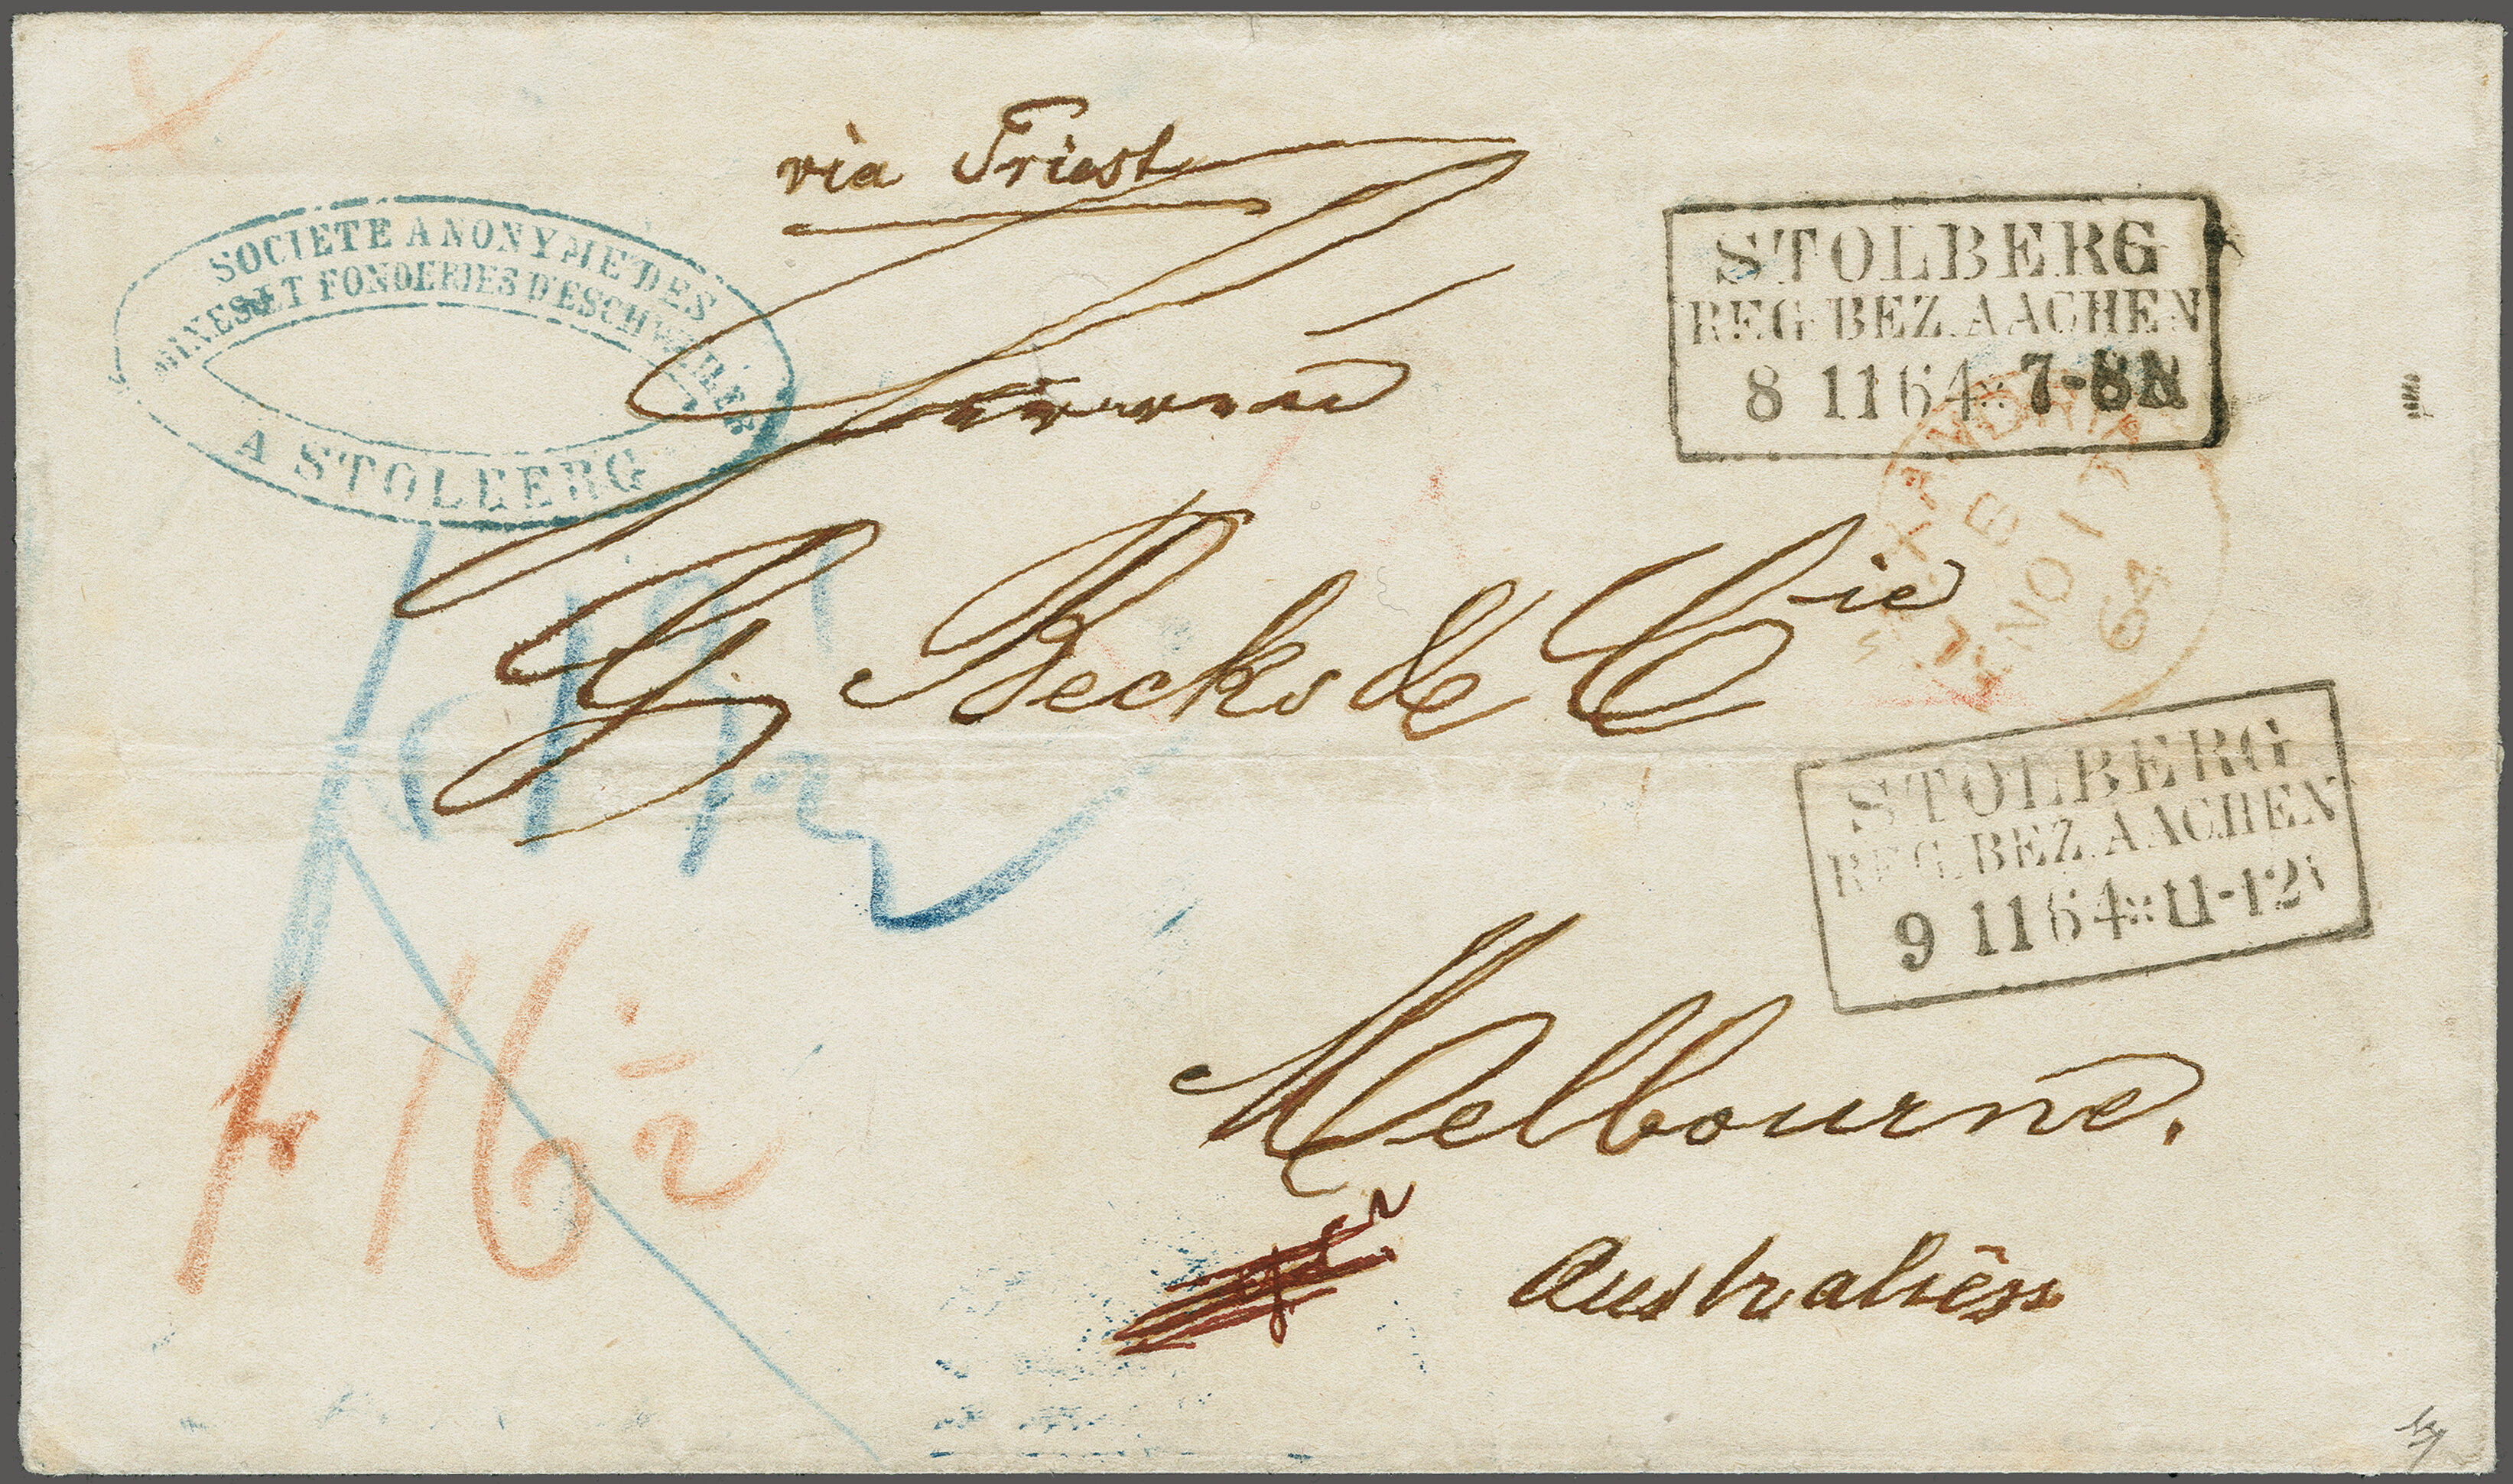 via Triest
SOCIETE ANONYME DES
MINES ET FONDERIES D'ESCHWEILER
A STOLBERG
STOLBERG
REG. BEZ. AACHEN
8 11 64 7-8 N
ALEXANDRIA
B
NO 17
64
Becks & Cie
STOLBERG
REG. BEZ. AACHEN
9 11 64 11-12
Melbourne.
16 1/2
Australien